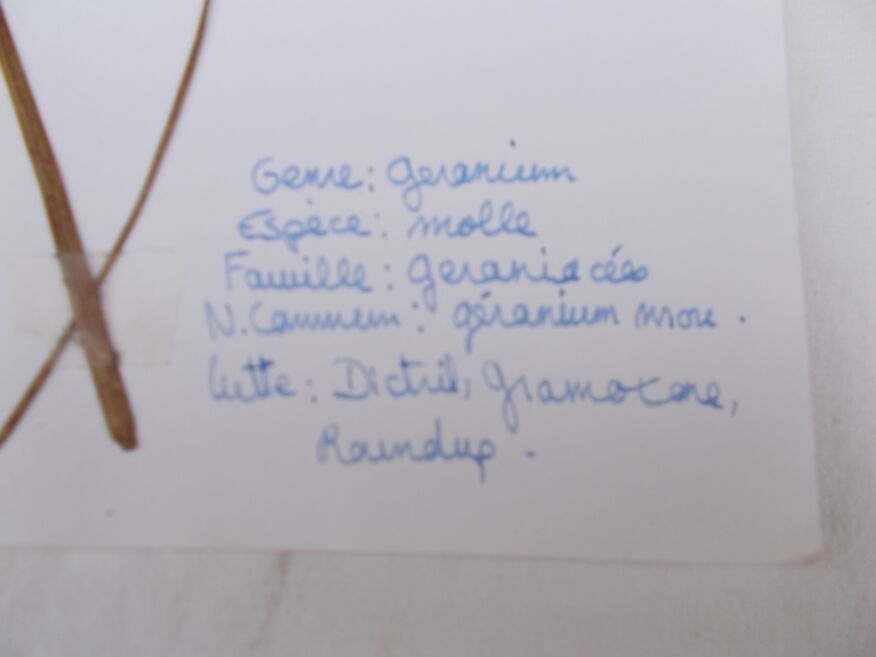 Genre: Geranium
Espèce: molle
Famille: Geraniacées
N. Commun: géranium mou.
Lutte: Dictril, Gramoxone,
Roundup.